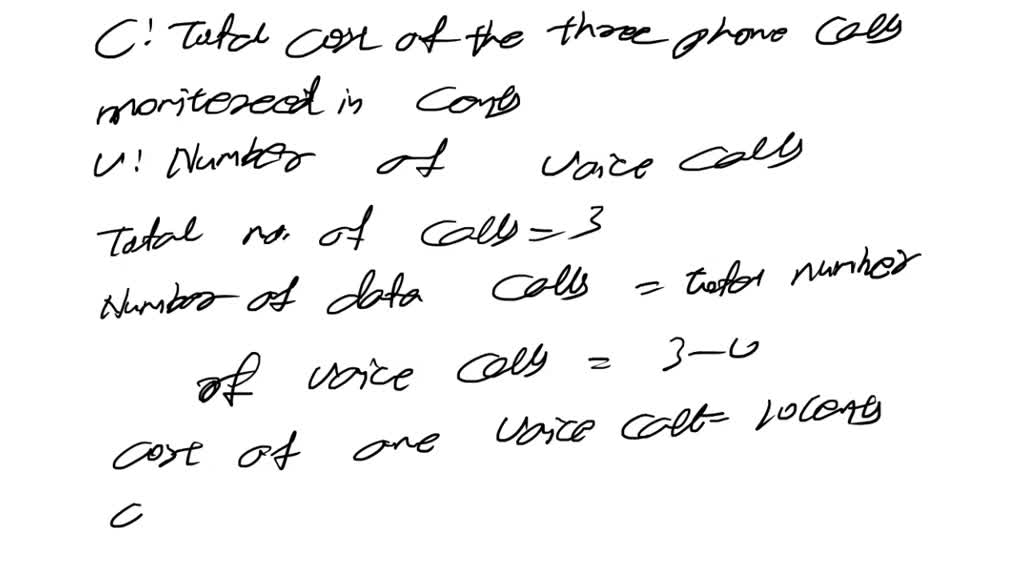 C! Total cost of the three phone calls
monitereed in Cents
V! Number of voice calls
Total no. of calls = 3
Number of data calls = total number
of voice calls = 3-v
cost of one voice call = 20 cents
C